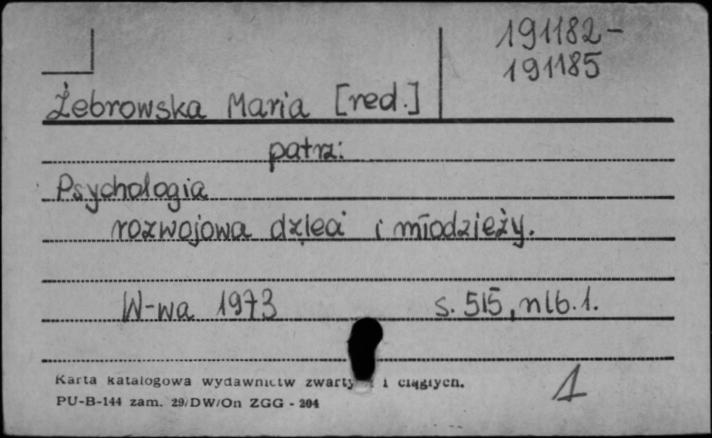 191182-
191185
Żebrowska Maria [red.]
patrz:
Psychologia
rozwojowa dzieci i młodzieży.
W-wa 1973 s. 515, nlb. 1.
Karta katalogowa wydawnictw zwartych i ciągłych.
PU-B-144 zam. 29/DW/On ZGG - 204
1